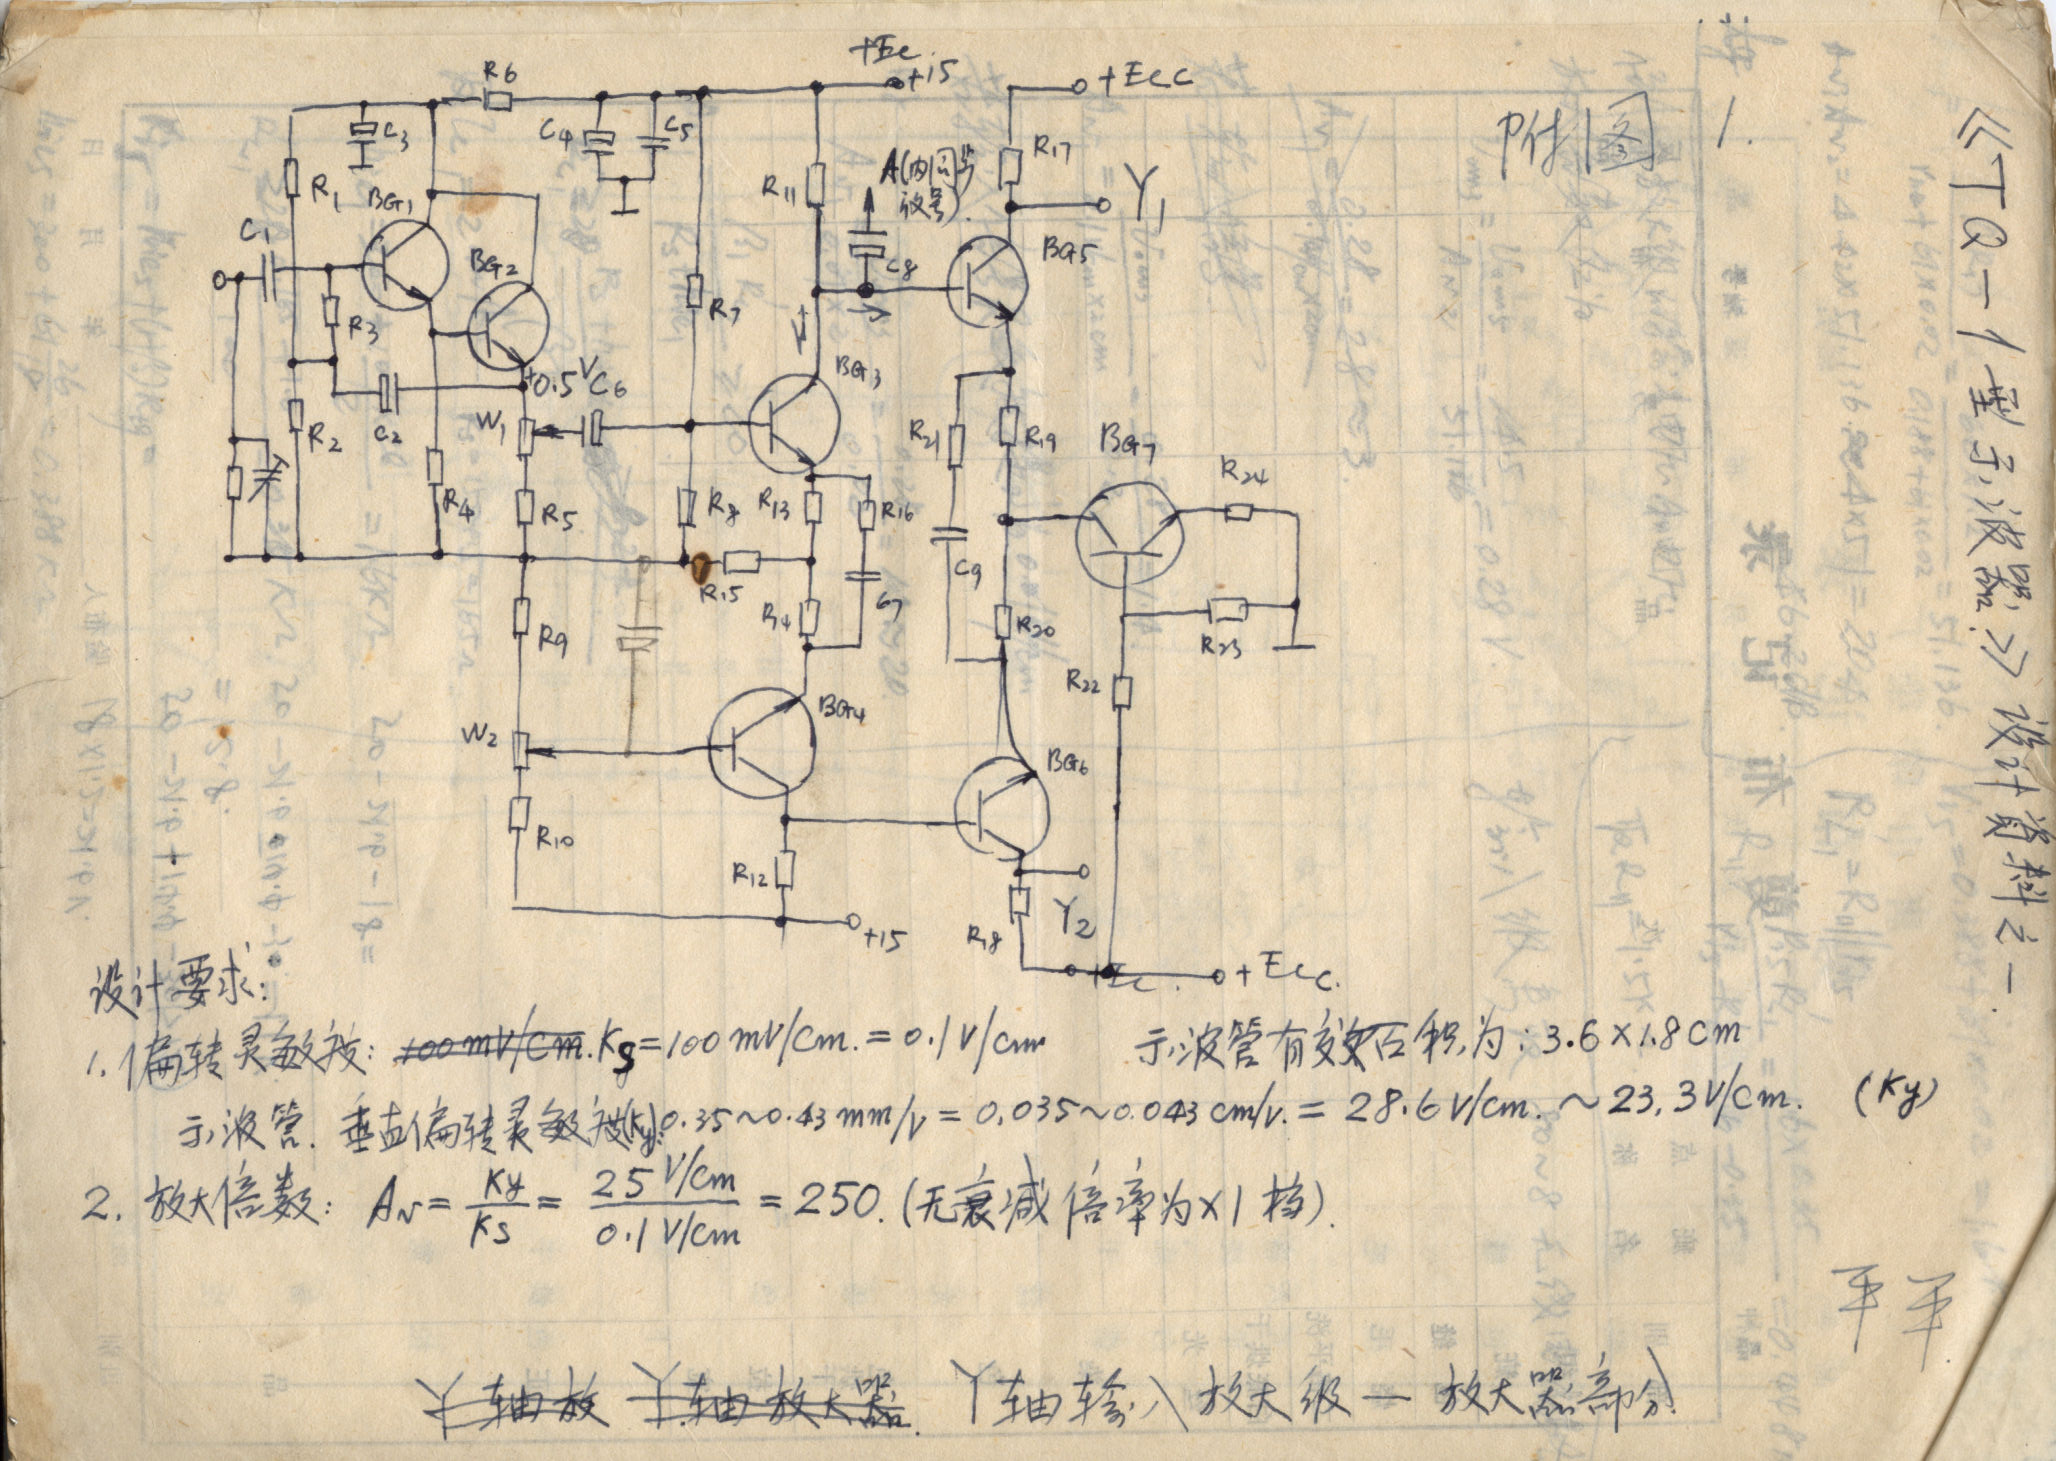 +Ec
+15
+Ecc
R6
C3
C4
C5
R1
BG1
R11
A(内同步
R17
附图 1.
《TQ-1型示波器》设计资料之一
Y1
C1
BG2
C8
BG5
R3
R7
+0.5V
C6
BG3
R2
C2
W1
R21
R19
BG7
R24
R4
R5
R8
R13
R16
C9
R15
R14
C7
R9
R20
R23
R22
W2
BG4
BG6
R10
R12
+15
R18
Y2
+Ec.
+Ecc.
设计要求:
1. 偏转灵敏按: 100mV/Cm. Ks=100mV/Cm.=0.1V/cm 示波管有效面积为: 3.6×1.8cm
示波管. 垂直偏转灵敏按(Ky): 0.35~0.43mm/v = 0.035~0.043cm/v. = 28.6V/cm. ~23.3V/cm. (Ky)
2. 放大倍数: Av = Ky/Ks = 25V/cm / 0.1V/cm = 250. (无衰减倍率为×1档).
Y轴放 Y轴放大器. Y轴输入放大级一放大器部分